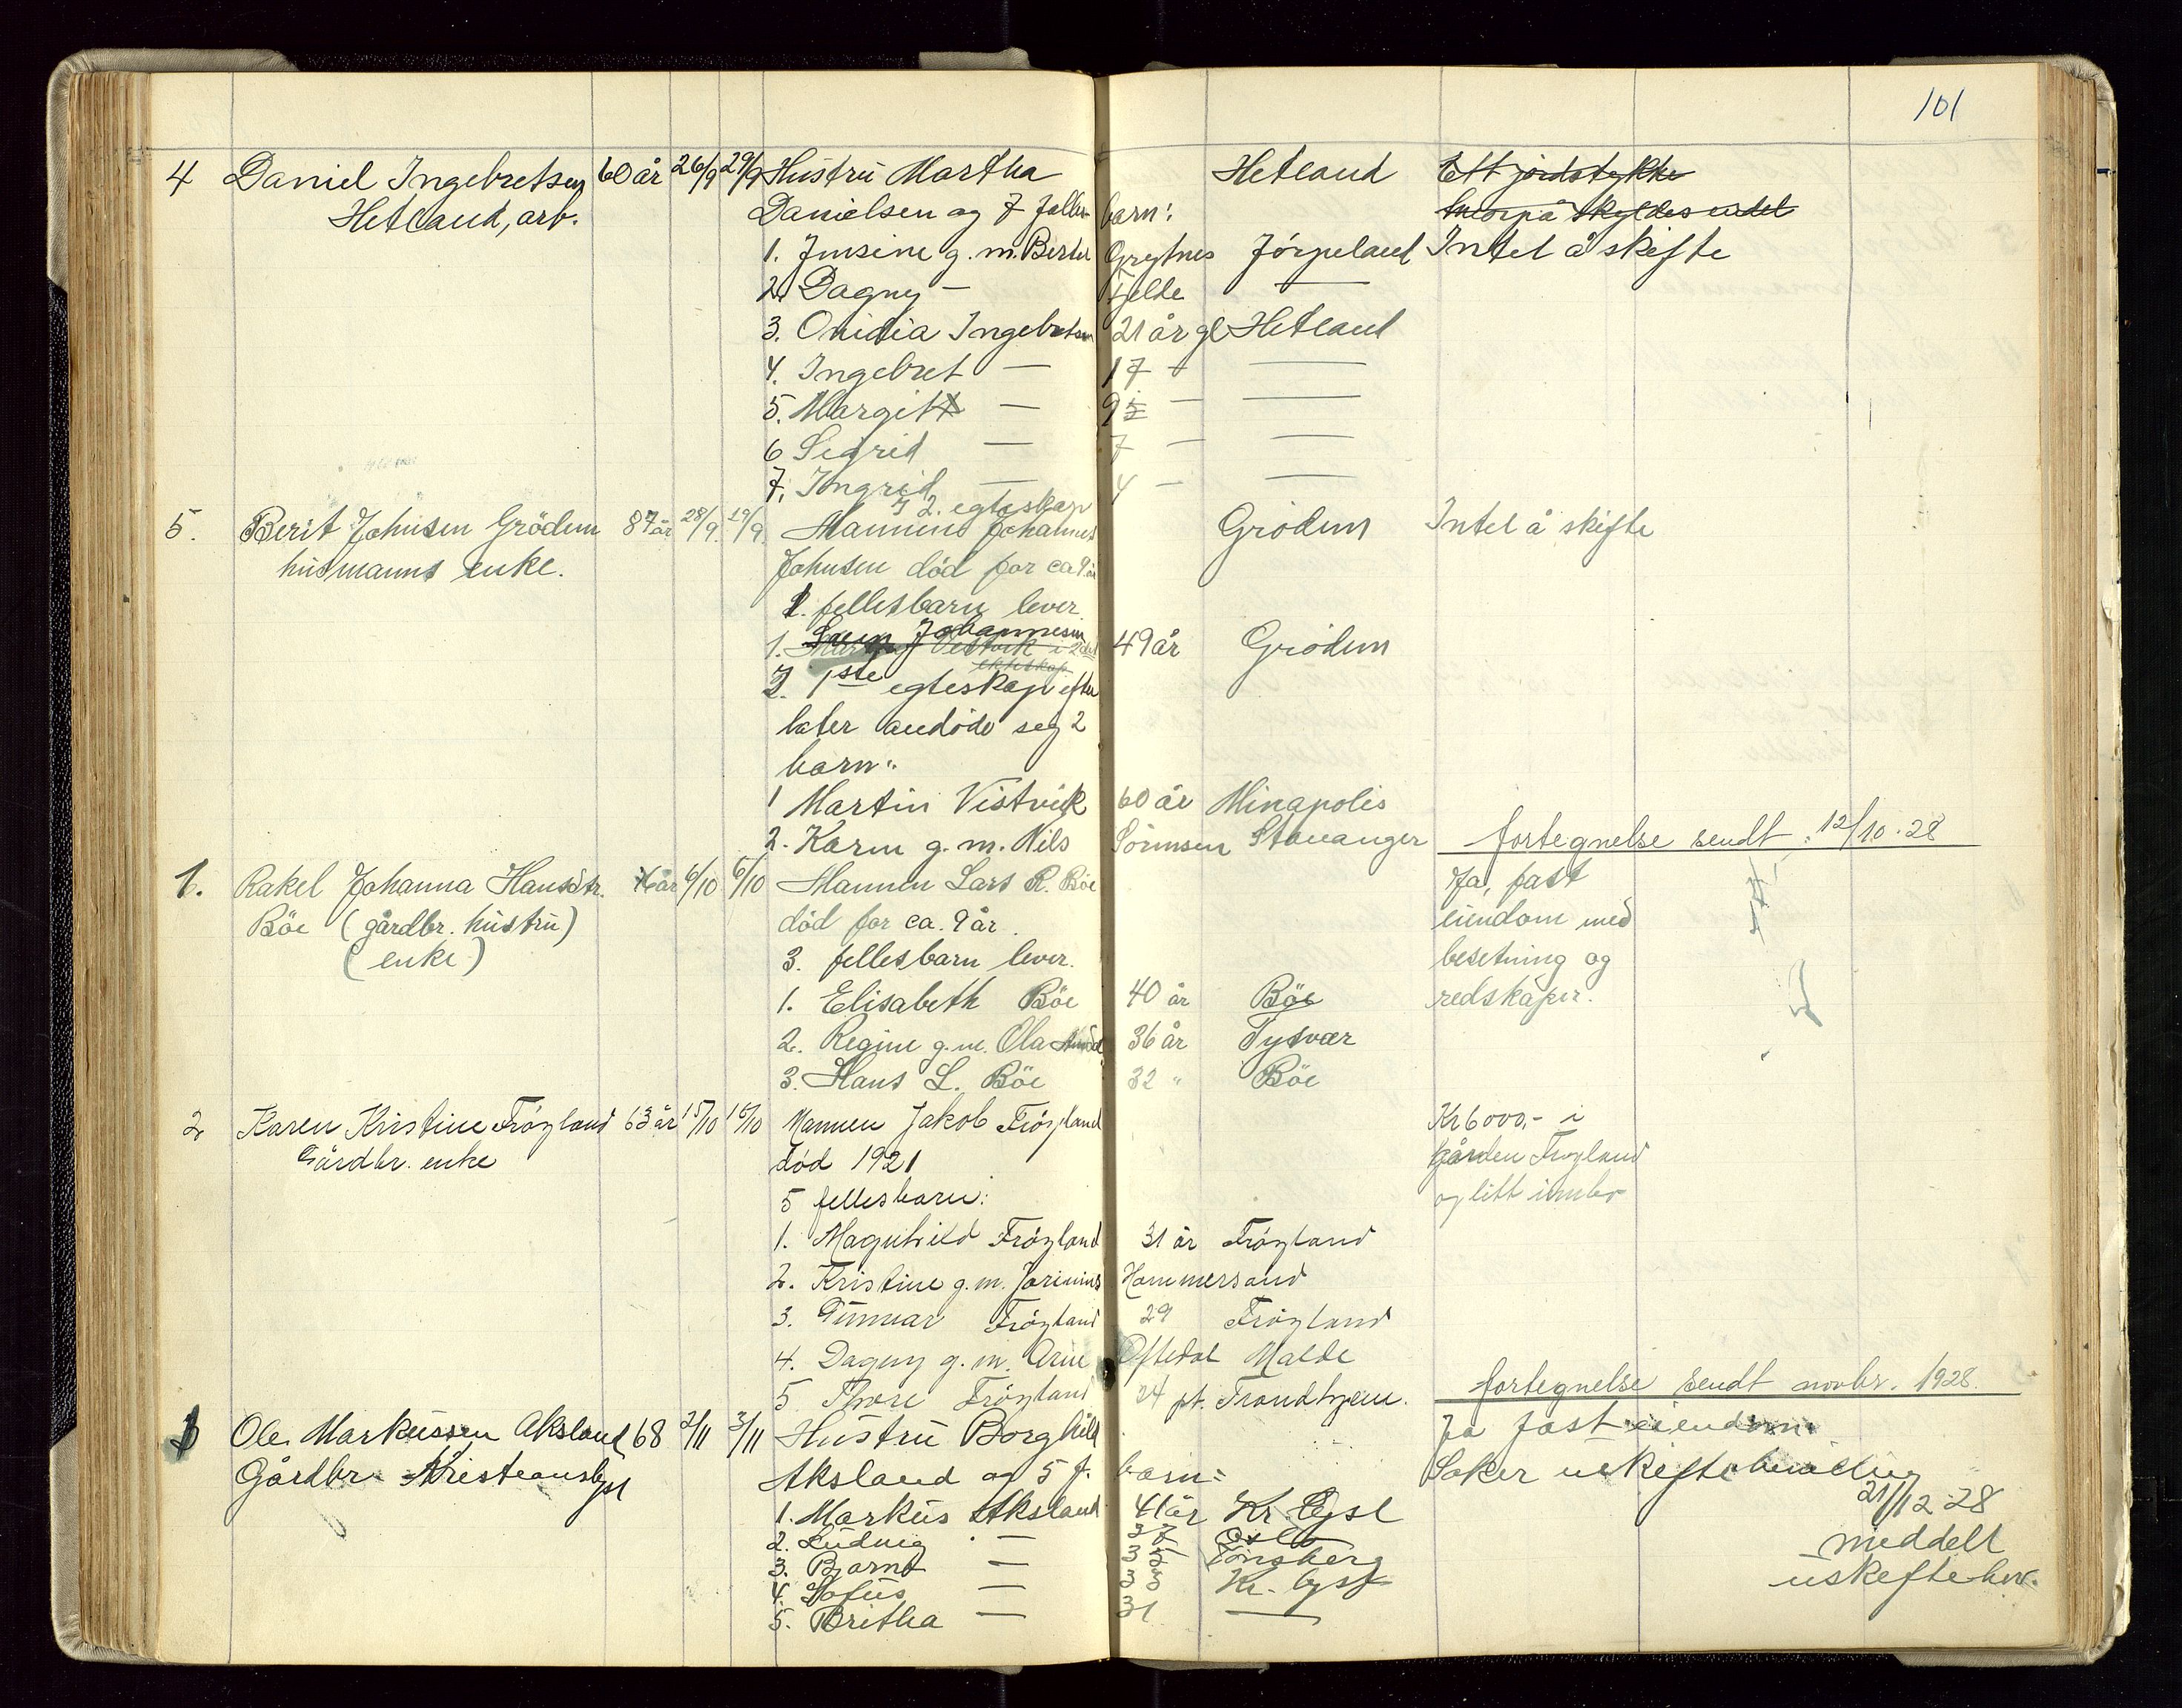 101
4 Daniel Ingebretsen 60 år 26/9 29/9 Hustru Martha Hetland Ett jordstykke
Hetland, arb. Danielsen og 7 felles barn: hvorpå skyldes endel
1. Jensine g. m. Bertel Grytnes Jørpeland Intet å skifte
2. Dagny — Fjelde —
3. Ovidia Ingebretsen 21 år gl Hetland
4. Ingebret — 17 — —
5. Margit — 9 — —
6 Sigrid — 7 — —
7. Ingrid — 4 — —
I 2. egteskap
5. Berit Johnsen Grödem 87 år 28/9. 29/9. Mannens Johannes Grödem Intet å skifte
husmanns enke. Johnsen död for ca 9 år
1. fellesbarn lever
1. Johannesen 49 år Grödem
Vestvik i 2det
ekteskap
I 1ste egteskap efter
later avdöde seg 2
barn:
1 Martin Vistvik 60 år Minapolis
2. Karen g. m. Nils Sörensen Stavanger fortegnelse sendt 12/10.28
1. Rakel Johanna Hansdtr. 76 år 6/10 6/10 Mannen Lars R. Böe Ja, fast
Böe (gårdbr. hustru) död for ca. 9 år. eiendom med
(enke) 3. fellesbarn lever. besetning og
1. Elisabeth Böe 40 år Böe redskaper.
2. Regine g. m. Ola 36 år Tysvær
3. Hans L. Böe 32 " Böe
2 Karen Kristine Fröyland 63 år 15/10 15/10 Mannen Jakob Fröyland Kr 6000,- i
Gårdbr. enke död 1921 gården Fröyland
5 fellesbarn: og litt innbo
1. Magnhild Fröyland 31 år Fröyland
2. Kristine g. m. Hammersand
3. Gunnar Fröyland 29 Fröyland
4. Dagny g. m. Arne Oftedal Malde
5. Thore Fröyland 24 pt. Trondhjem. fortegnelse sendt novbr. 1928.
1 Ole Markussen Aksland 68 2/11 3/11 Hustru Borghild Ja fast eiendom
Gårdbr. Kristianslyst Aksland og 5 f. barn: Söker uskiftebevilling
1. Markus Aksland 41 år Kr. Lyst 21/12 28
2. Ludvig — 37 Oslo meddelt
3. Bjarne — 35 Tönsberg uskiftebev.
4. Sofus — 33 Kr. Lyst
5. Britha — 31 —